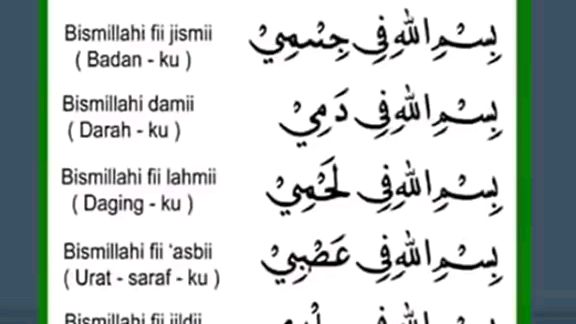 Bismillahi fii jismii بِسْمِ اللهِ فِي جِسْمِيْ
( Badan - ku )
Bismillahi damii بِسْمِ اللهِ فِي دَمِيْ
( Darah - ku )
Bismillahi fii lahmii بِسْمِ اللهِ فِي لَحْمِيْ
( Daging - ku )
Bismillahi fii ‘asbii بِسْمِ اللهِ فِي عَصْبِيْ
( Urat - saraf - ku )
Bismillahi fii jildii